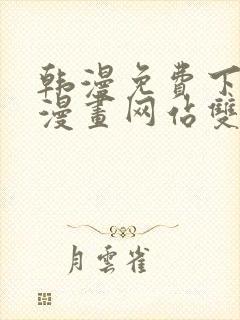 韩漫免费下
漫畫网佔雙
月雲雀